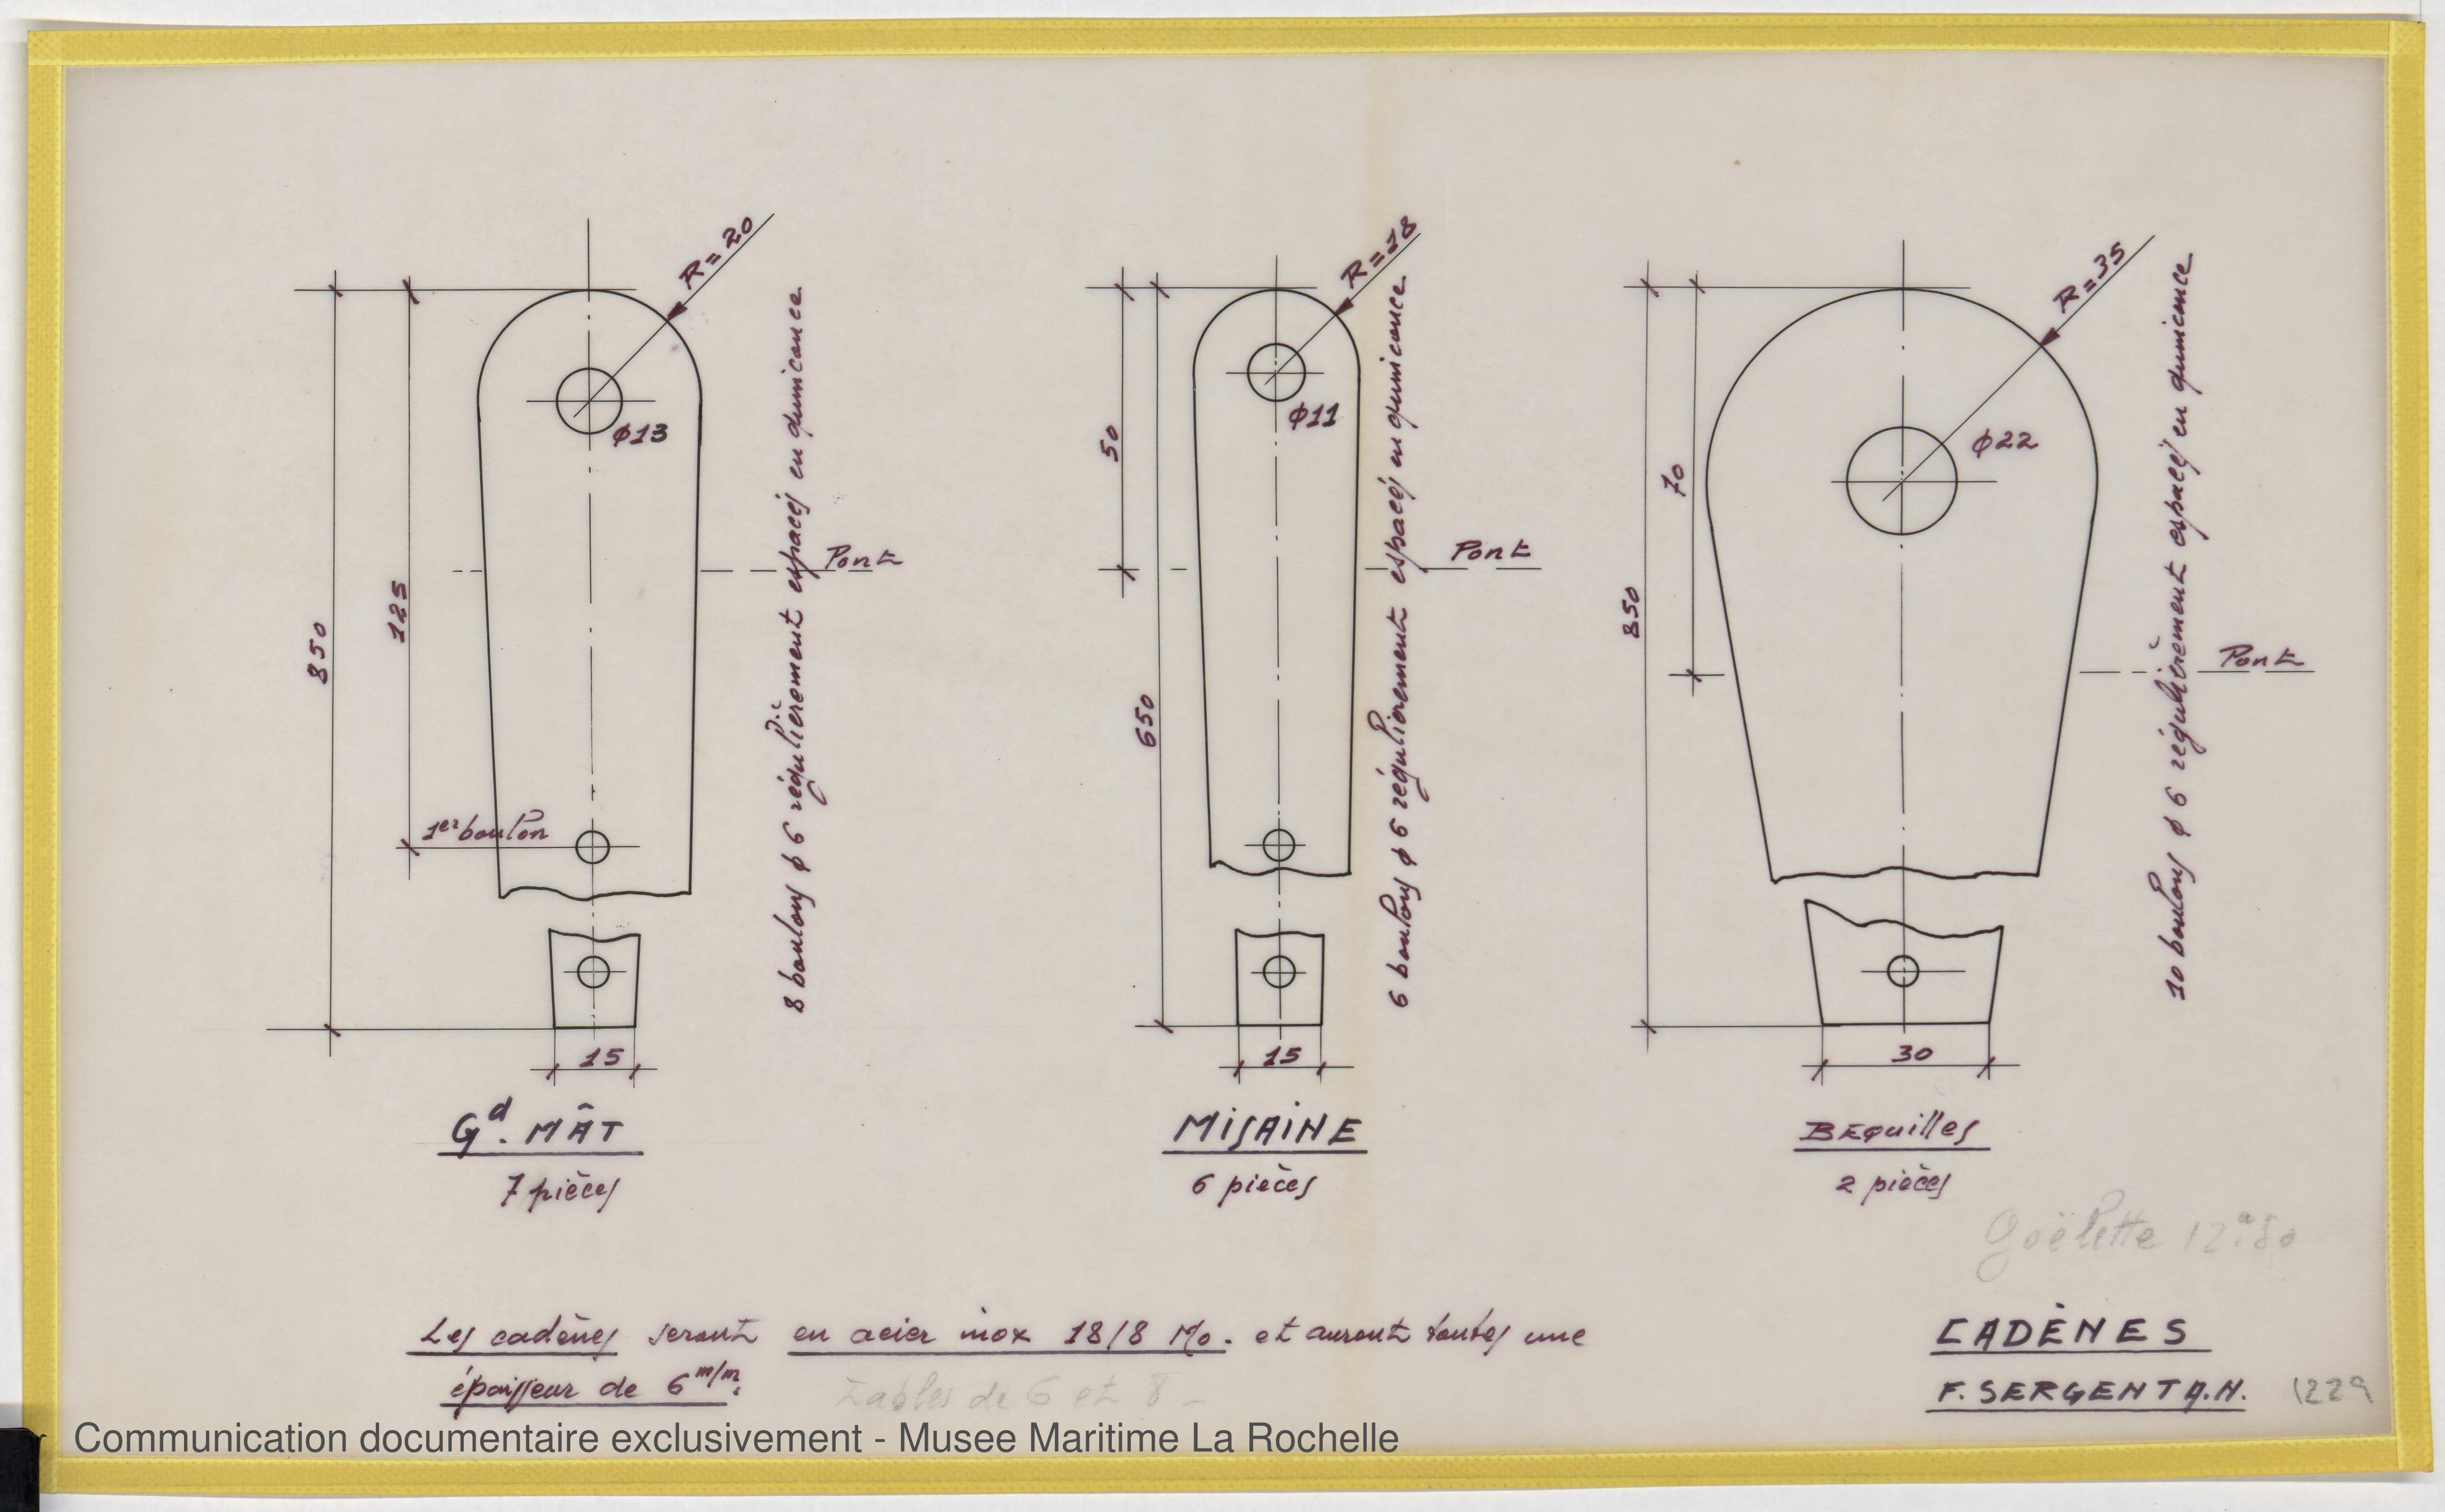 R=20
φ13
850
125
1er boulon
Pont
8 boulons φ6 régulièrement espacés en quinconce
15
Gd. MÂT
7 pièces
R=18
φ11
50
650
Pont
6 boulons φ6 régulièrement espacés en quinconce
15
MISAINE
6 pièces
R=35
φ22
850
70
Pont
10 boulons φ6 régulièrement espacés en quinconce
30
BEQuilles
2 pièces
Goëlette 12m50
Les cadènes seront en acier inox 18/8 Mo. et auront toutes une
épaisseur de 6 m/m.
de 6 et 8
CADÈNES
F. SERGENT A.N. 1229
Communication documentaire exclusivement - Musee Maritime La Rochelle